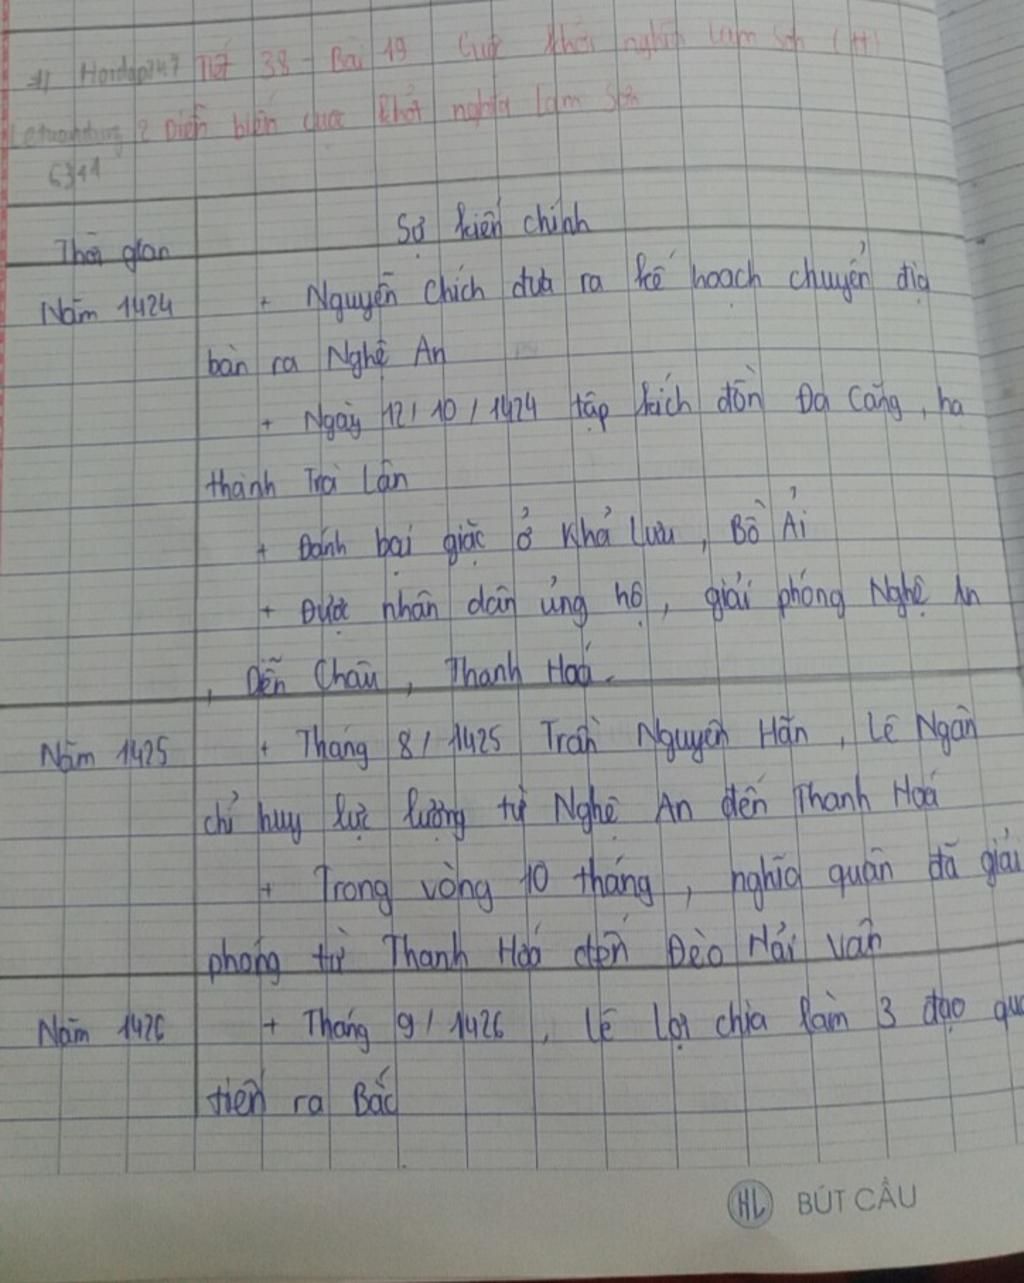 Hoidap247 Tiết 38 - Bài 19 Cuộc khởi nghĩa Lam Sơn (tt)
2 Diễn biến của khởi nghĩa Lam Sơn
6341
Sự kiện chính
Thời gian
Năm 1424 + Nguyễn Chích đưa ra kế hoạch chuyển địa
bàn ra Nghệ An
+ Ngày 12/10/1424 tập kích đồn Đa Căng, hạ
thành Trà Lân
+ Đánh bại giặc ở Khả Lưu, Bồ Ải
+ Được nhân dân ủng hộ, giải phóng Nghệ An
, Diễn Châu, Thanh Hoá.
Năm 1425 + Tháng 8/1425 Trần Nguyên Hãn, Lê Ngân
chỉ huy lực lượng từ Nghệ An đến Thanh Hoá
+ Trong vòng 10 tháng, nghĩa quân đã giải
phóng từ Thanh Hoá đến Đèo Hải vân
Năm 1426 + Tháng 9/1426, Lê Lợi chia làm 3 đạo
tiến ra Bắc
HL BÚT CẦU